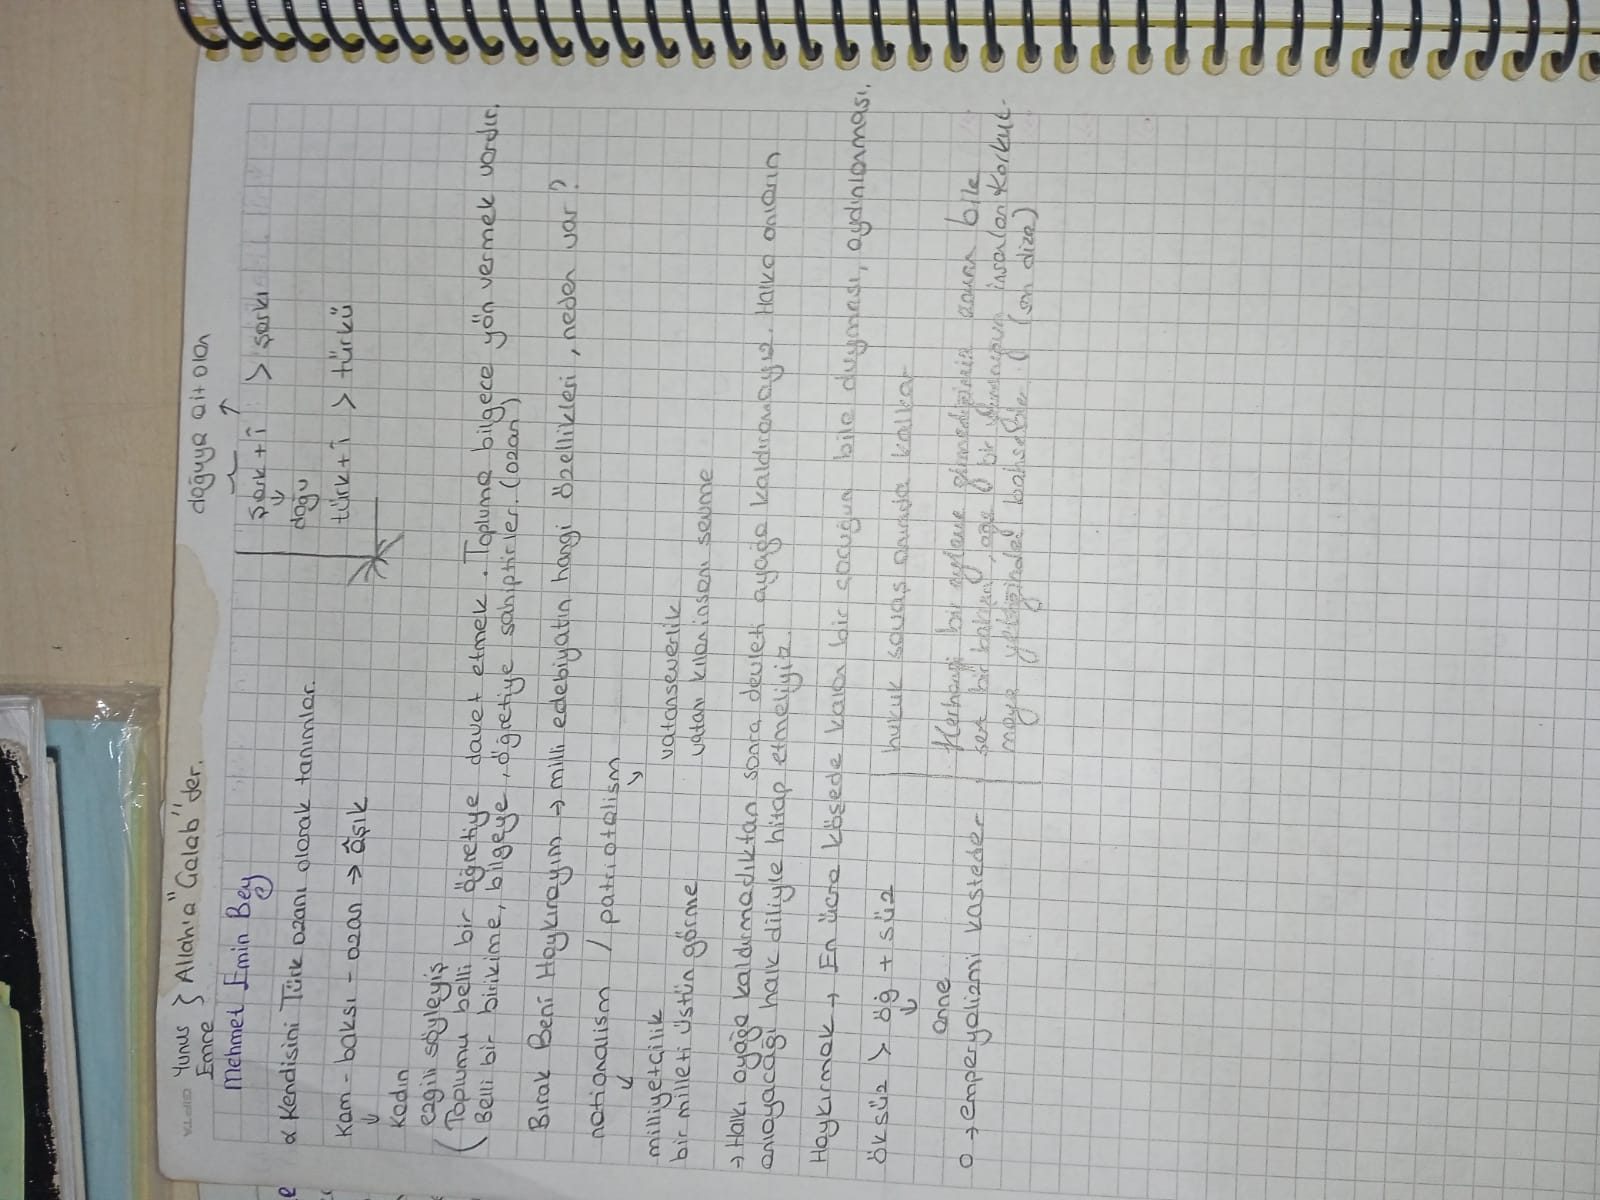 Yunus Emre } Allah'a "Çalab" der.
Mehmet Emin Bey
doğuya ait olan
şark + î > şarkı
doğu
türk + î > türkü
α Kendisini Türk ozanı olarak tanımlar.
Kam - baksı - ozan → âşık
Kadın
ezgili söyleyiş
(Toplumu belli bir öğretiye davet etmek. Topluma bilgece yön vermek vardır.
Belli bir birikime, bilgeye, öğretiye sahiptirler. (ozan)
Bırak Beni Haykırayım → milli edebiyatın hangi özellikleri, neden var?
nationalism / patriotalism
milliyetcilik vatanseverlik
bir milleti üstün görme vatanı kılan insanı sevme
→ Halkı ayağa kaldırmadıktan sonra devleti ayağa kaldıramayız. Halka onların
anlayacağı halk diliyle hitap etmeliyiz.
Haykırmak → En ücra köşede kalan bir çocuğun bile duyması, aydınlanması.
öksüz > ög + süz
anne
hukuk savaş anında kalkar
o → emperyalizmi kasteder
Herhangi bir bile
sert bir bir insanları korkut-
maya (son dize)